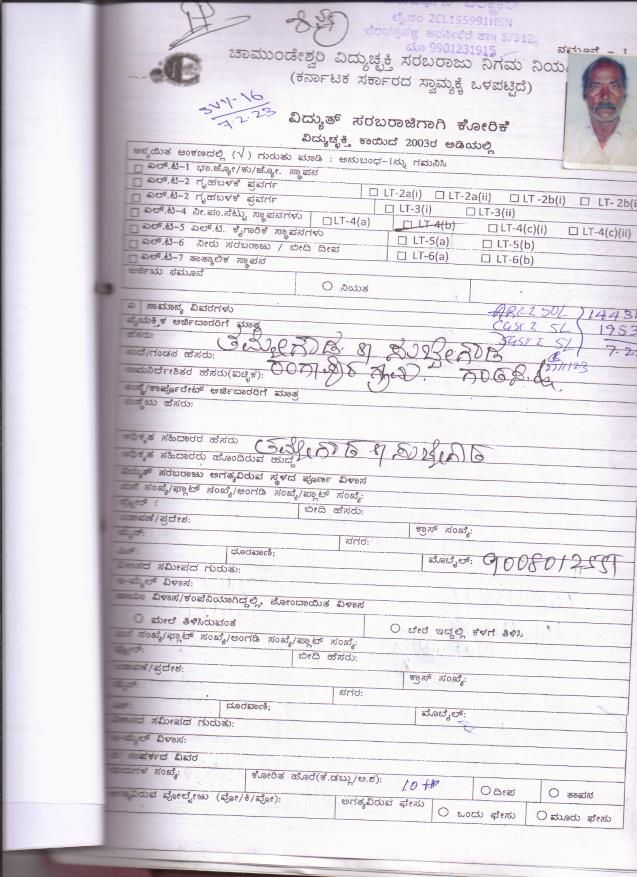 ಲೈ.ನಂ 2CL155991HSN
ಮೊ 9901231915
ನಮೂನೆ - 1
ಚಾಮುಂಡೇಶ್ವರಿ ವಿದ್ಯುಚ್ಛಕ್ತಿ ಸರಬರಾಜು ನಿಗಮ ನಿಯ
(ಕರ್ನಾಟಕ ಸರ್ಕಾರದ ಸ್ವಾಮ್ಯಕ್ಕೆ ಒಳಪಟ್ಟಿದೆ)
SVY-16
7-2-23
ವಿದ್ಯುತ್ ಸರಬರಾಜಿಗಾಗಿ ಕೋರಿಕೆ
ವಿದ್ಯುಚ್ಛಕ್ತಿ ಕಾಯಿದೆ 2003ರ ಅಡಿಯಲ್ಲಿ
ಅನ್ವಯಿತ ಅಂಕಣದಲ್ಲಿ (√) ಗುರುತು ಮಾಡಿ : ಅನುಬಂಧ-1ನ್ನು ಗಮನಿಸಿ
ಎಲ್.ಟಿ-1 ಭಾ.ಜ್ಯೋ/ಕು/ಜ್ಯೋ. ಸ್ಥಾಪನ
ಎಲ್.ಟಿ-2 ಗೃಹಬಳಕೆ ಪ್ರವರ್ಗ LT-2a(i) LT-2a(ii) LT-2b(i) LT-2b(ii
ಎಲ್.ಟಿ-2 ಗೃಹಬಳಕೆ ಪ್ರವರ್ಗ LT-3(i) LT-3(ii)
ಎಲ್.ಟಿ-4 ನೀ.ಪಂ.ಸೆಟ್ಟು ಸ್ಥಾಪನಗಳು LT-4(a) LT-4(b) LT-4(c)(i) LT-4(c)(ii)
ಎಲ್.ಟಿ-5 ಎಲ್.ಟಿ. ಕೈಗಾರಿಕೆ ಸ್ಥಾಪನಗಳು LT-5(a) LT-5(b)
ಎಲ್.ಟಿ-6 ನೀರು ಸರಬರಾಜು / ಬೀದಿ ದೀಪ LT-6(a) LT-6(b)
ಎಲ್.ಟಿ-7 ತಾತ್ಕಾಲಿಕ ಸ್ಥಾಪನ
ಅರ್ಜಿಯ ನಮೂನೆ ನಿಯತ
ಎ ಸಾಮಾನ್ಯ ವಿವರಗಳು
ವೈಯಕ್ತಿಕ ಅರ್ಜಿದಾರರಿಗೆ ಮಾತ್ರ
ಹೆಸರು: ತಮ್ಮೇಗೌಡ S/ ಸುಬ್ಬೇಗೌಡ
ತಂದೆ/ಗಂಡನ ಹೆಸರು:
ನಾಮನಿರ್ದೇಶಿತರ ಹೆಸರು(ಐಚ್ಛಿಕ):
ಸಂಸ್ಥೆ/ಕಾರ್ಪೊರೇಟ್ ಅರ್ಜಿದಾರರಿಗೆ ಮಾತ್ರ
ಸಂಸ್ಥೆಯ ಹೆಸರು:
ಅಧಿಕೃತ ಸಹಿದಾರರ ಹೆಸರು ತಮ್ಮೇಗೌಡ S/ ಸುಬ್ಬೇಗೌಡ
ಅಧಿಕೃತ ಸಹಿದಾರರು ಹೊಂದಿರುವ ಹುದ್ದೆ
ವಿದ್ಯುತ್ ಸರಬರಾಜು ಅಗತ್ಯವಿರುವ ಸ್ಥಳದ ಪೂರ್ಣ ವಿಳಾಸ
ಮನೆ ಸಂಖ್ಯೆ/ಫ್ಲಾಟ್ ಸಂಖ್ಯೆ/ಅಂಗಡಿ ಸಂಖ್ಯೆ/ಪ್ಲಾಟ್ ಸಂಖ್ಯೆ:
ಬೀದಿ ಹೆಸರು:
ಬಡಾವಣೆ/ಪ್ರದೇಶ: ಕ್ರಾಸ್ ಸಂಖ್ಯೆ:
ನಗರ:
ದೂರವಾಣಿ: ಮೊಬೈಲ್:
ವಿಳಾಸದ ಸಮೀಪದ ಗುರುತು:
ಇ-ಮೈಲ್ ವಿಳಾಸ:
ಖಾಯಂ ವಿಳಾಸ/ಕಂಪೆನಿಯಾಗಿದ್ದಲ್ಲಿ, ನೋಂದಾಯಿತ ವಿಳಾಸ
ಮೇಲೆ ತಿಳಿಸಿರುವಂತೆ ಬೇರೆ ಇದ್ದಲ್ಲಿ ಕೆಳಗೆ ತಿಳಿಸಿ
ಮನೆ ಸಂಖ್ಯೆ/ಫ್ಲಾಟ್ ಸಂಖ್ಯೆ/ಅಂಗಡಿ ಸಂಖ್ಯೆ/ಪ್ಲಾಟ್ ಸಂಖ್ಯೆ:
ಬೀದಿ ಹೆಸರು:
ಬಡಾವಣೆ/ಪ್ರದೇಶ: ಕ್ರಾಸ್ ಸಂಖ್ಯೆ:
ನಗರ:
ದೂರವಾಣಿ: ಮೊಬೈಲ್:
ವಿಳಾಸದ ಸಮೀಪದ ಗುರುತು:
ಇ-ಮೈಲ್ ವಿಳಾಸ:
ಸಂಪರ್ಕದ ವಿವರ
ಸಂಖ್ಯೆ: ಕೋರಿತ ಹೊರೆ(ಕೆ.ಡಬ್ಲು/ಅ.ಶ): 10 HP ದೀಪ ತಾಪನ
ಅಗತ್ಯವಿರುವ ವೋಲ್ಟೇಜು (ವೋ/ಕಿ/ವೋ): ಅಗತ್ಯವಿರುವ ಫೇಸು ಒಂದು ಫೇಸು ಮೂರು ಫೇಸು